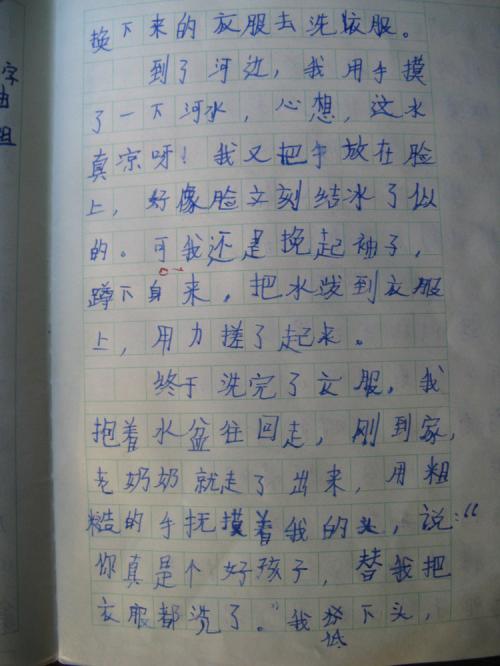 换下来的衣服去洗衣服。
到了河边，我用手摸
了一下河水，心想，这水
真凉呀！我又把手放在脸
上，好像脸立刻结冰了似
的。可我还是挽起袖子，
蹲下身来，把水泼到衣服
上，用力搓了起来。
终于洗完了衣服，我
抱着水盆往回走，刚到家，
老奶奶就走了出来，用粗
糙的手抚摸着我的头，说：“
你真是个好孩子，替我把
衣服都洗了。”我低下头，
字
由